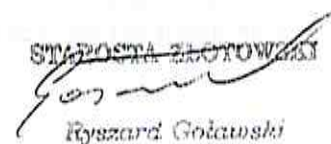 STAROSTA ZŁOTOWSKI
Ryszard Goławski